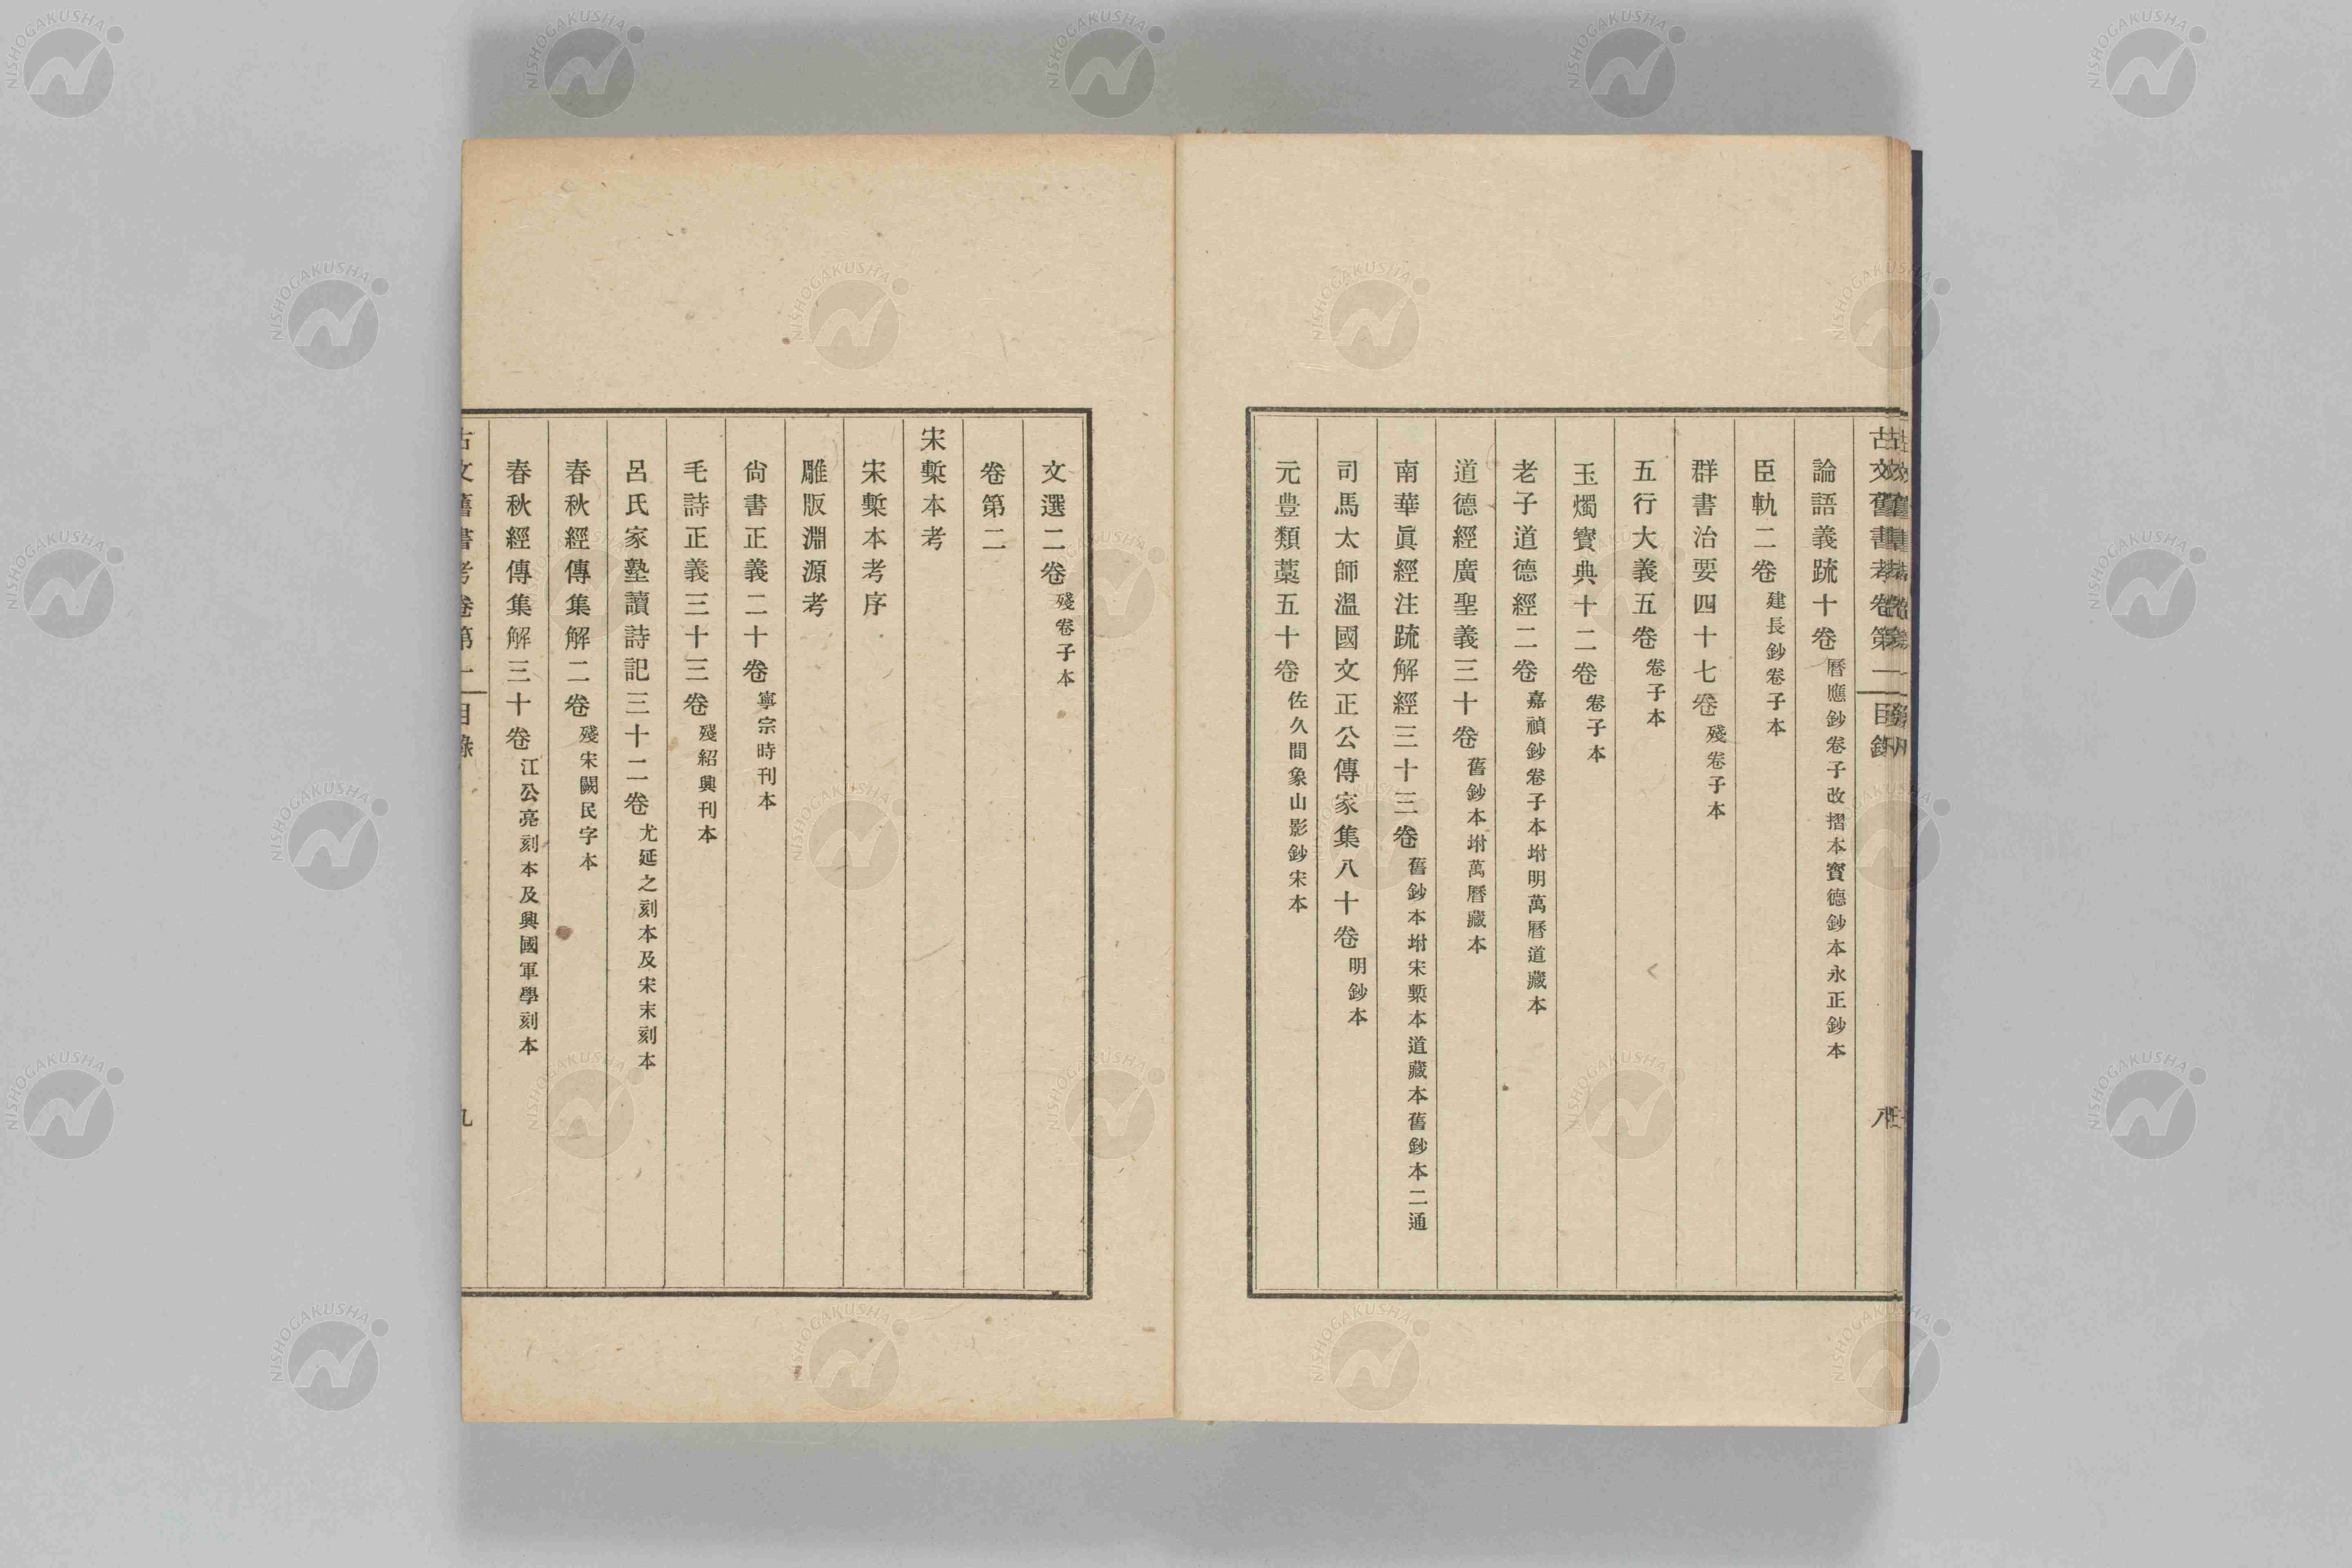 論語義疏十卷 曆應鈔卷子改摺本寶德鈔本永正鈔本
臣軌二卷 建長鈔卷子本
群書治要四十七卷 殘卷子本
五行大義五卷 卷子本
玉燭寶典十二卷 卷子本
老子道德經二卷 嘉禎鈔卷子本坿明萬曆道藏本
道德經廣聖義三十卷 舊鈔本坿萬曆藏本
南華眞經注疏解經三十三卷 舊鈔本坿宋槧本道藏本舊鈔本二通
司馬太師溫國文正公傳家集八十卷 明鈔本
元豊類藁五十卷 佐久間象山影鈔宋本
文選二卷 殘卷子本
卷第二
宋槧本考
宋槧本考序
雕版淵源考
尙書正義二十卷 寧宗時刊本
毛詩正義三十三卷 殘紹興刊本
呂氏家塾讀詩記三十二卷 尤延之刻本及宋末刻本
春秋經傳集解二卷 殘宋闕民字本
春秋經傳集解三十卷 江公亮刻本及興國軍學刻本
NISHOGAKUSHA